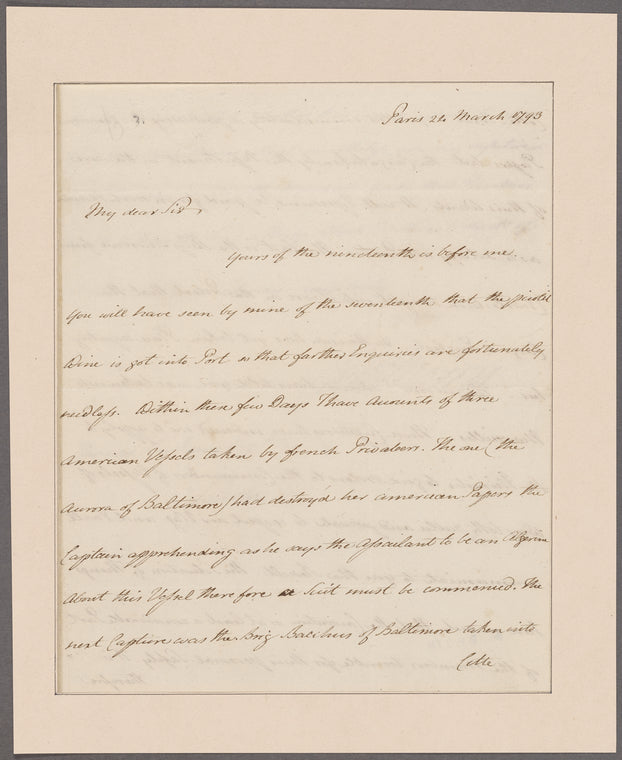 Paris 24 March 1793
My dear Sir,
Yours of the nineteenth is before me.
You will have seen by mine of the seventeenth that the
Wine is got into Port so that farther Enquiries are fortunately
needless. Within these few Days I have Accounts of three
American Vessels taken by french Privateers. The one (the
Aurora of Baltimore) had destroy'd her american Papers the
Captain apprehending as he says the Assailant to be an Algerine
About this Vessel therefore a Suit must be commenced. The
next Capture was the brig Bacchus of Baltimore taken into
Cette